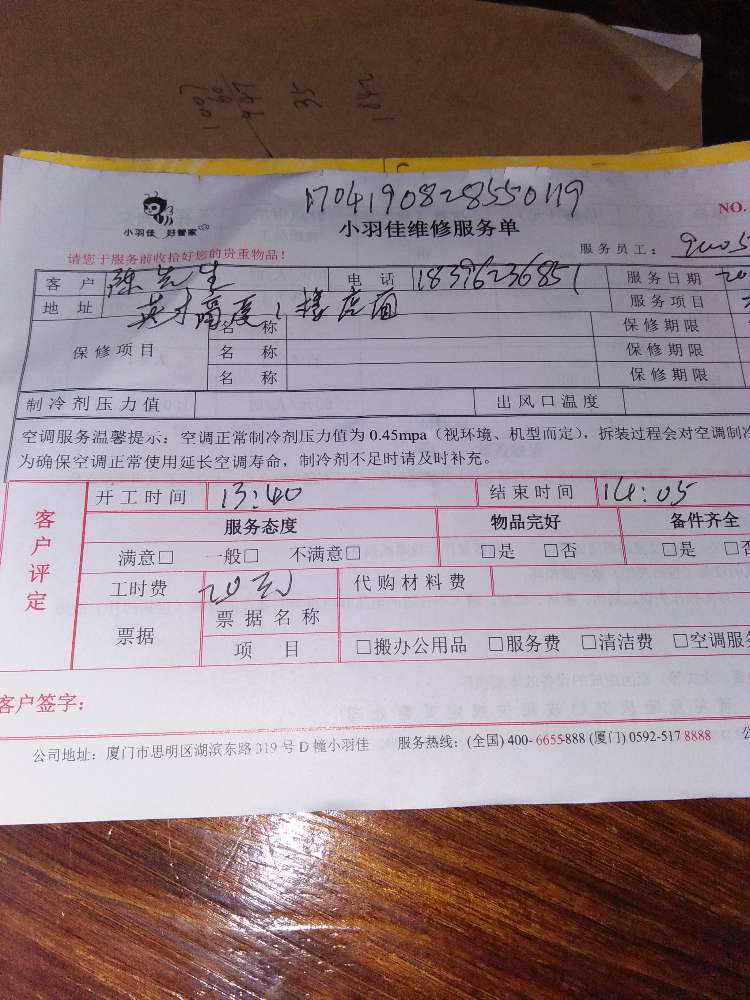 1704190828550119
小羽佳 好管家
小羽佳维修服务单
NO.
请您于服务前收拾好您的贵重物品!
服务员工:
客 户 陈先生 电 话 18396236851 服务日期 20
地 址 服务项目
保修项目 名 称 保修期限
名 称 保修期限
名 称 保修期限
制冷剂压力值 出风口温度
空调服务温馨提示:空调正常制冷剂压力值为 0.45mpa(视环境、机型而定),拆装过程会对空调制冷
为确保空调正常使用延长空调寿命,制冷剂不足时请及时补充。
客户评定 开工时间 13:40 结束时间 14:05
服务态度 物品完好 备件齐全
满意□ 一般□ 不满意□ □是 □否 □是 □否
工时费 20元 代购材料费
票据 票据名称
项 目 □搬办公用品 □服务费 □清洁费 □空调服务
客户签字:
公司地址:厦门市思明区湖滨东路 319 号 D 幢小羽佳 服务热线:(全国) 400-6655-888 (厦门) 0592-517 8888 公